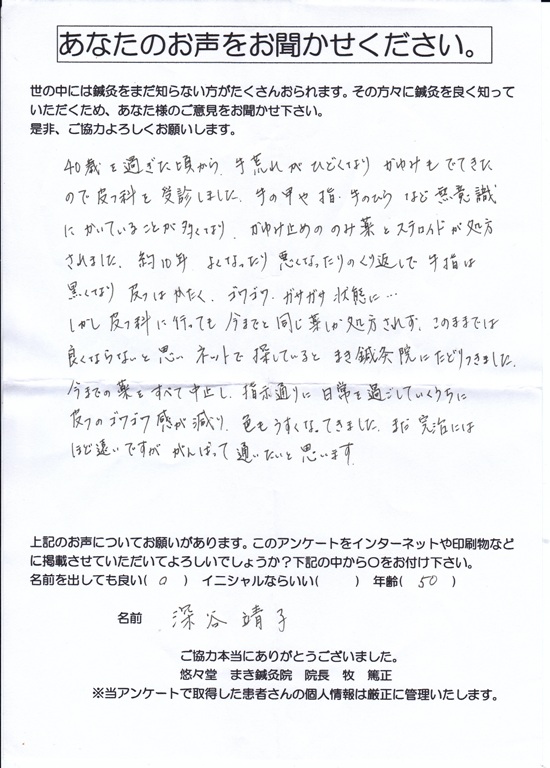 あなたのお声をお聞かせください。
世の中には鍼灸をまだ知らない方がたくさんおられます。その方々に鍼灸を良く知って
いただくため、あなた様のご意見をお聞かせ下さい。
是非、ご協力よろしくお願いします。
40歳を過ぎた頃から、手荒れがひどくなり かゆみもでてきた
ので皮フ科を受診しました。手の甲や指・手のひらなど無意識
にかいていることが多くなり、かゆけ止めののみ薬とステロイドが処方
されました。約10年 よくなったり悪くなったりのくり返しで手指は
黒くなり皮フはかたく、ゴワゴワ・ガサガサ状態に…
しかし皮フ科に行っても今までと同じ薬しか処方されず、このままでは
良くならないと思い ネットで探していると まき鍼灸院にたどりつきました。
今までの薬をすべて中止し、指示通りに日常を過ごしていくうちに
皮フのゴワゴワ感が減り、色もうすくなってきました。まだ完治には
ほど遠いですが がんばって通いたいと思います。
上記のお声についてお願いがあります。このアンケートをインターネットや印刷物など
に掲載させていただいてよろしいでしょうか？下記の中から〇をお付け下さい。
名前を出しても良い( 〇 ) イニシャルならいい( ) 年齢( 50 )
名前 深谷 靖子
ご協力本当にありがとうございました。
悠々堂 まき鍼灸院 院長 牧 篤正
※当アンケートで取得した患者さんの個人情報は厳正に管理いたします。